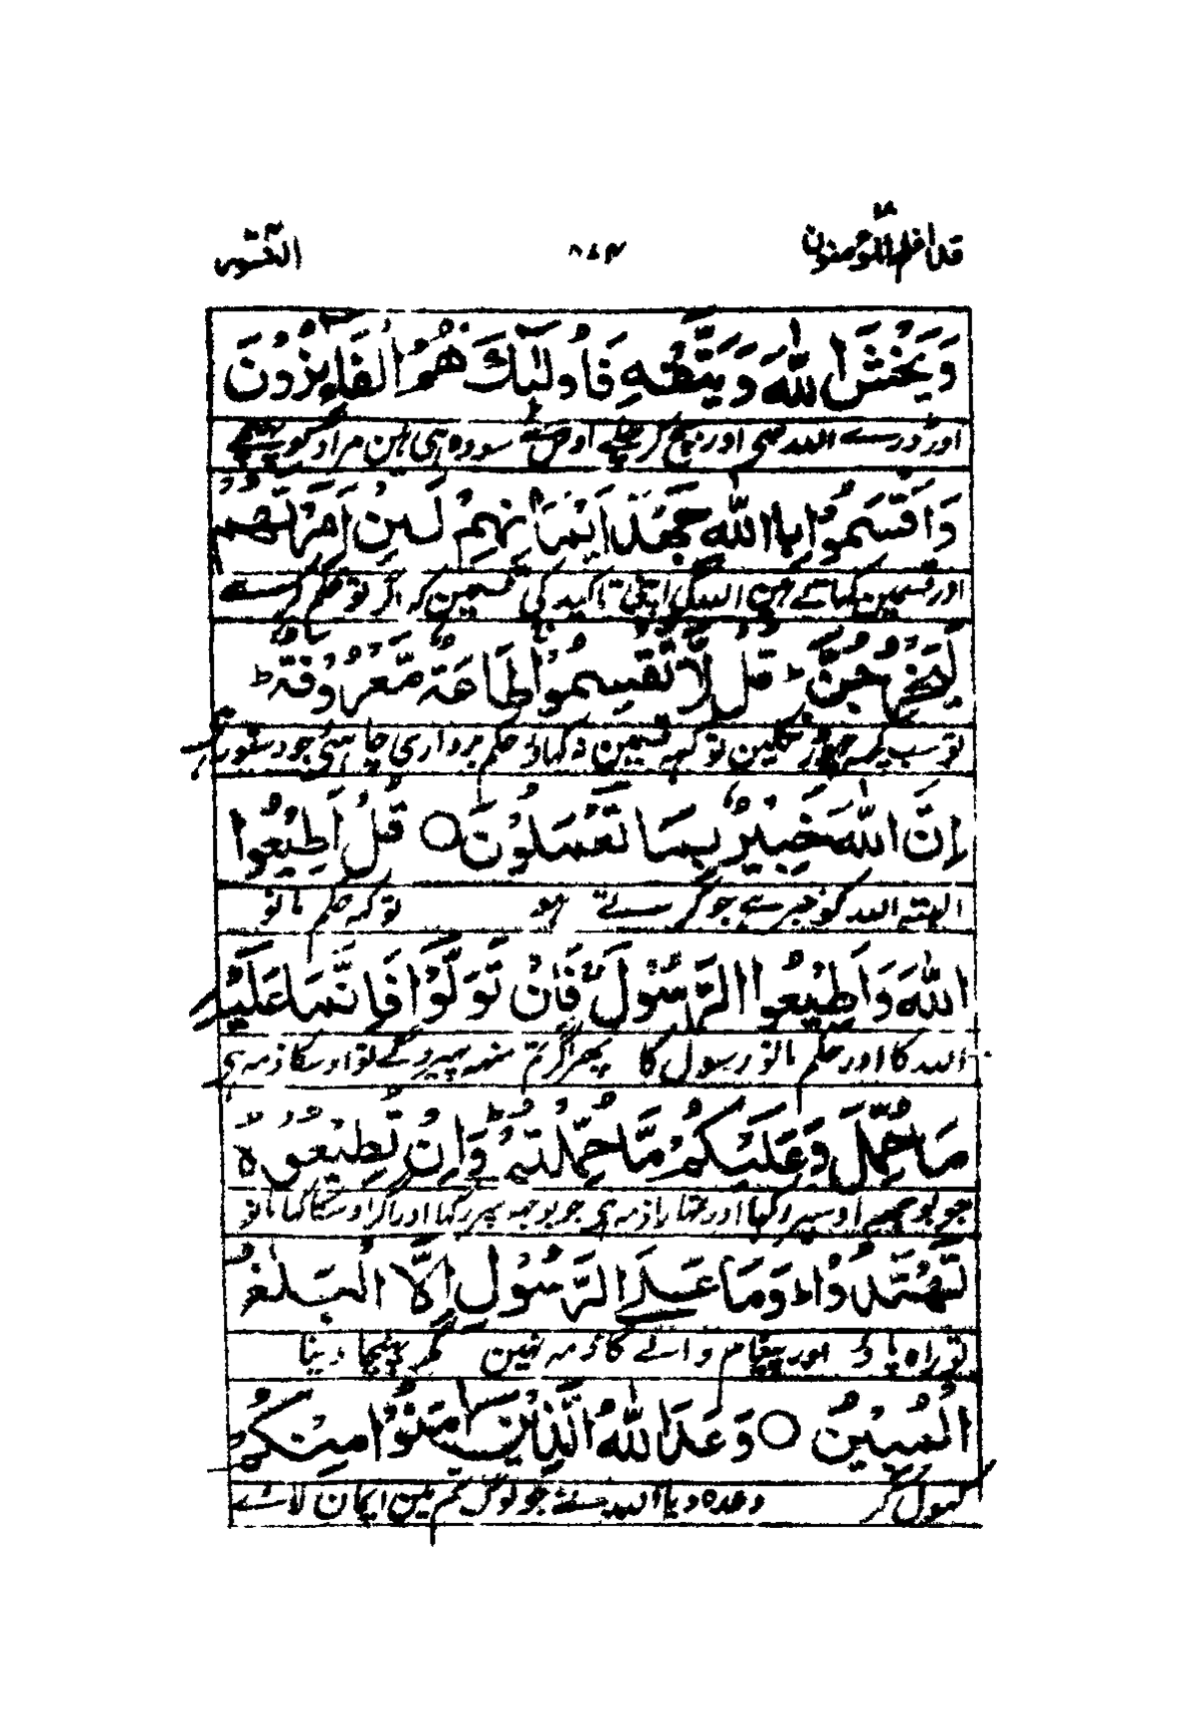 قد افلح المؤمنون ١٨ ٨٤٣ النور ٢٤
وَيَخْشَ اللهَ وَيَتَّقْهِ فَأُولٰٓئِكَ هُمُ الْفَآئِزُونَ
اور ڈرے اللہ سے اور بچ کر چلے اوس سے سو وہ ہی ہین مراد کو پہنچے
وَاَقْسَمُوْا بِاللهِ جَهْدَ اَيْمَانِهِمْ لَئِنْ اَمَرْتَهُمْ
اور قسمین کہاتے ہین اللہ کی اپنی تاکید کی قسمین کہ اگر تو حکم کرے
لَيَخْرُجُنَّ ط قُلْ لَّا تُقْسِمُوْا طَاعَةٌ مَّعْرُوْفَةٌ ط
تو سب کچہہ چھوڑ نکلین تو کہہ قسمین نہ کہاؤ حکم برداری چاہئی جو دستور ہے
اِنَّ اللهَ خَبِيْرٌ بِمَا تَعْمَلُوْنَ ○ قُلْ اَطِيْعُوا
البتہ اللہ کو خبر ہے جو کرتے ہو تو کہہ حکم مانو
اللهَ وَاَطِيْعُوا الرَّسُوْلَ فَاِنْ تَوَلَّوْا فَاِنَّمَا عَلَيْهِ
اللہ کا اور حکم مانو رسول کا پھر اگر تم منہہ پھیروگے تو اوسکا ذمہ ہی
مَا حُمِّلَ وَعَلَيْكُمْ مَّا حُمِّلْتُمْ ط وَاِنْ تُطِيْعُوْهُ
جو بوجھہ اوسپر رکہا اور تمہارا ذمہ ہی جو بوجھہ تمپر رکہا اور اگر اوسکا کہا مانو
تَهْتَدُوْا ط وَمَا عَلَى الرَّسُوْلِ اِلَّا الْبَلٰغُ
تو راہ پاؤ اور پیغام والے کا ذمہ نہین مگر پہنچا دینا
الْمُبِيْنُ ○ وَعَدَ اللهُ الَّذِيْنَ اٰمَنُوْا مِنْكُمْ
کہول کر وعدہ دیا اللہ نے جو لوگ تم مین ایمان لائے